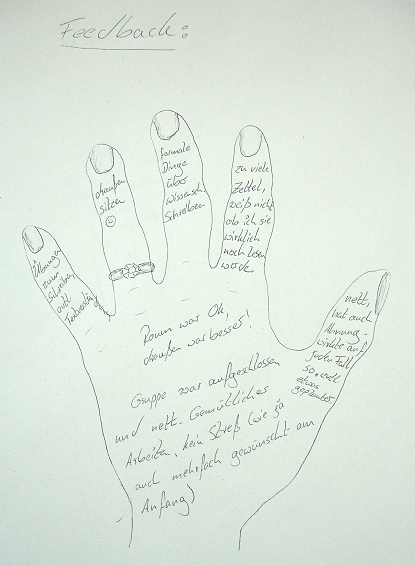 Feedback:
Übungen
zum
Schreiben
evtl.
draußen
sitzen
formale
Dinge
über
Wissensch.
Schreiben
zu viele
Zettel,
weiß nicht
ob ich sie
wirklich
noch lesen
werde
nett,
hat auch
Ahnung -
wirkte auf
jeden Fall
so, evtl.
etwas
geplanter
Raum war Ok,
draußen war besser!
Gruppe war aufgeschlossen
und nett. Gemütliches
Arbeiten, kein Streß (wie ja
auch mehrfach gewünscht am
Anfang)